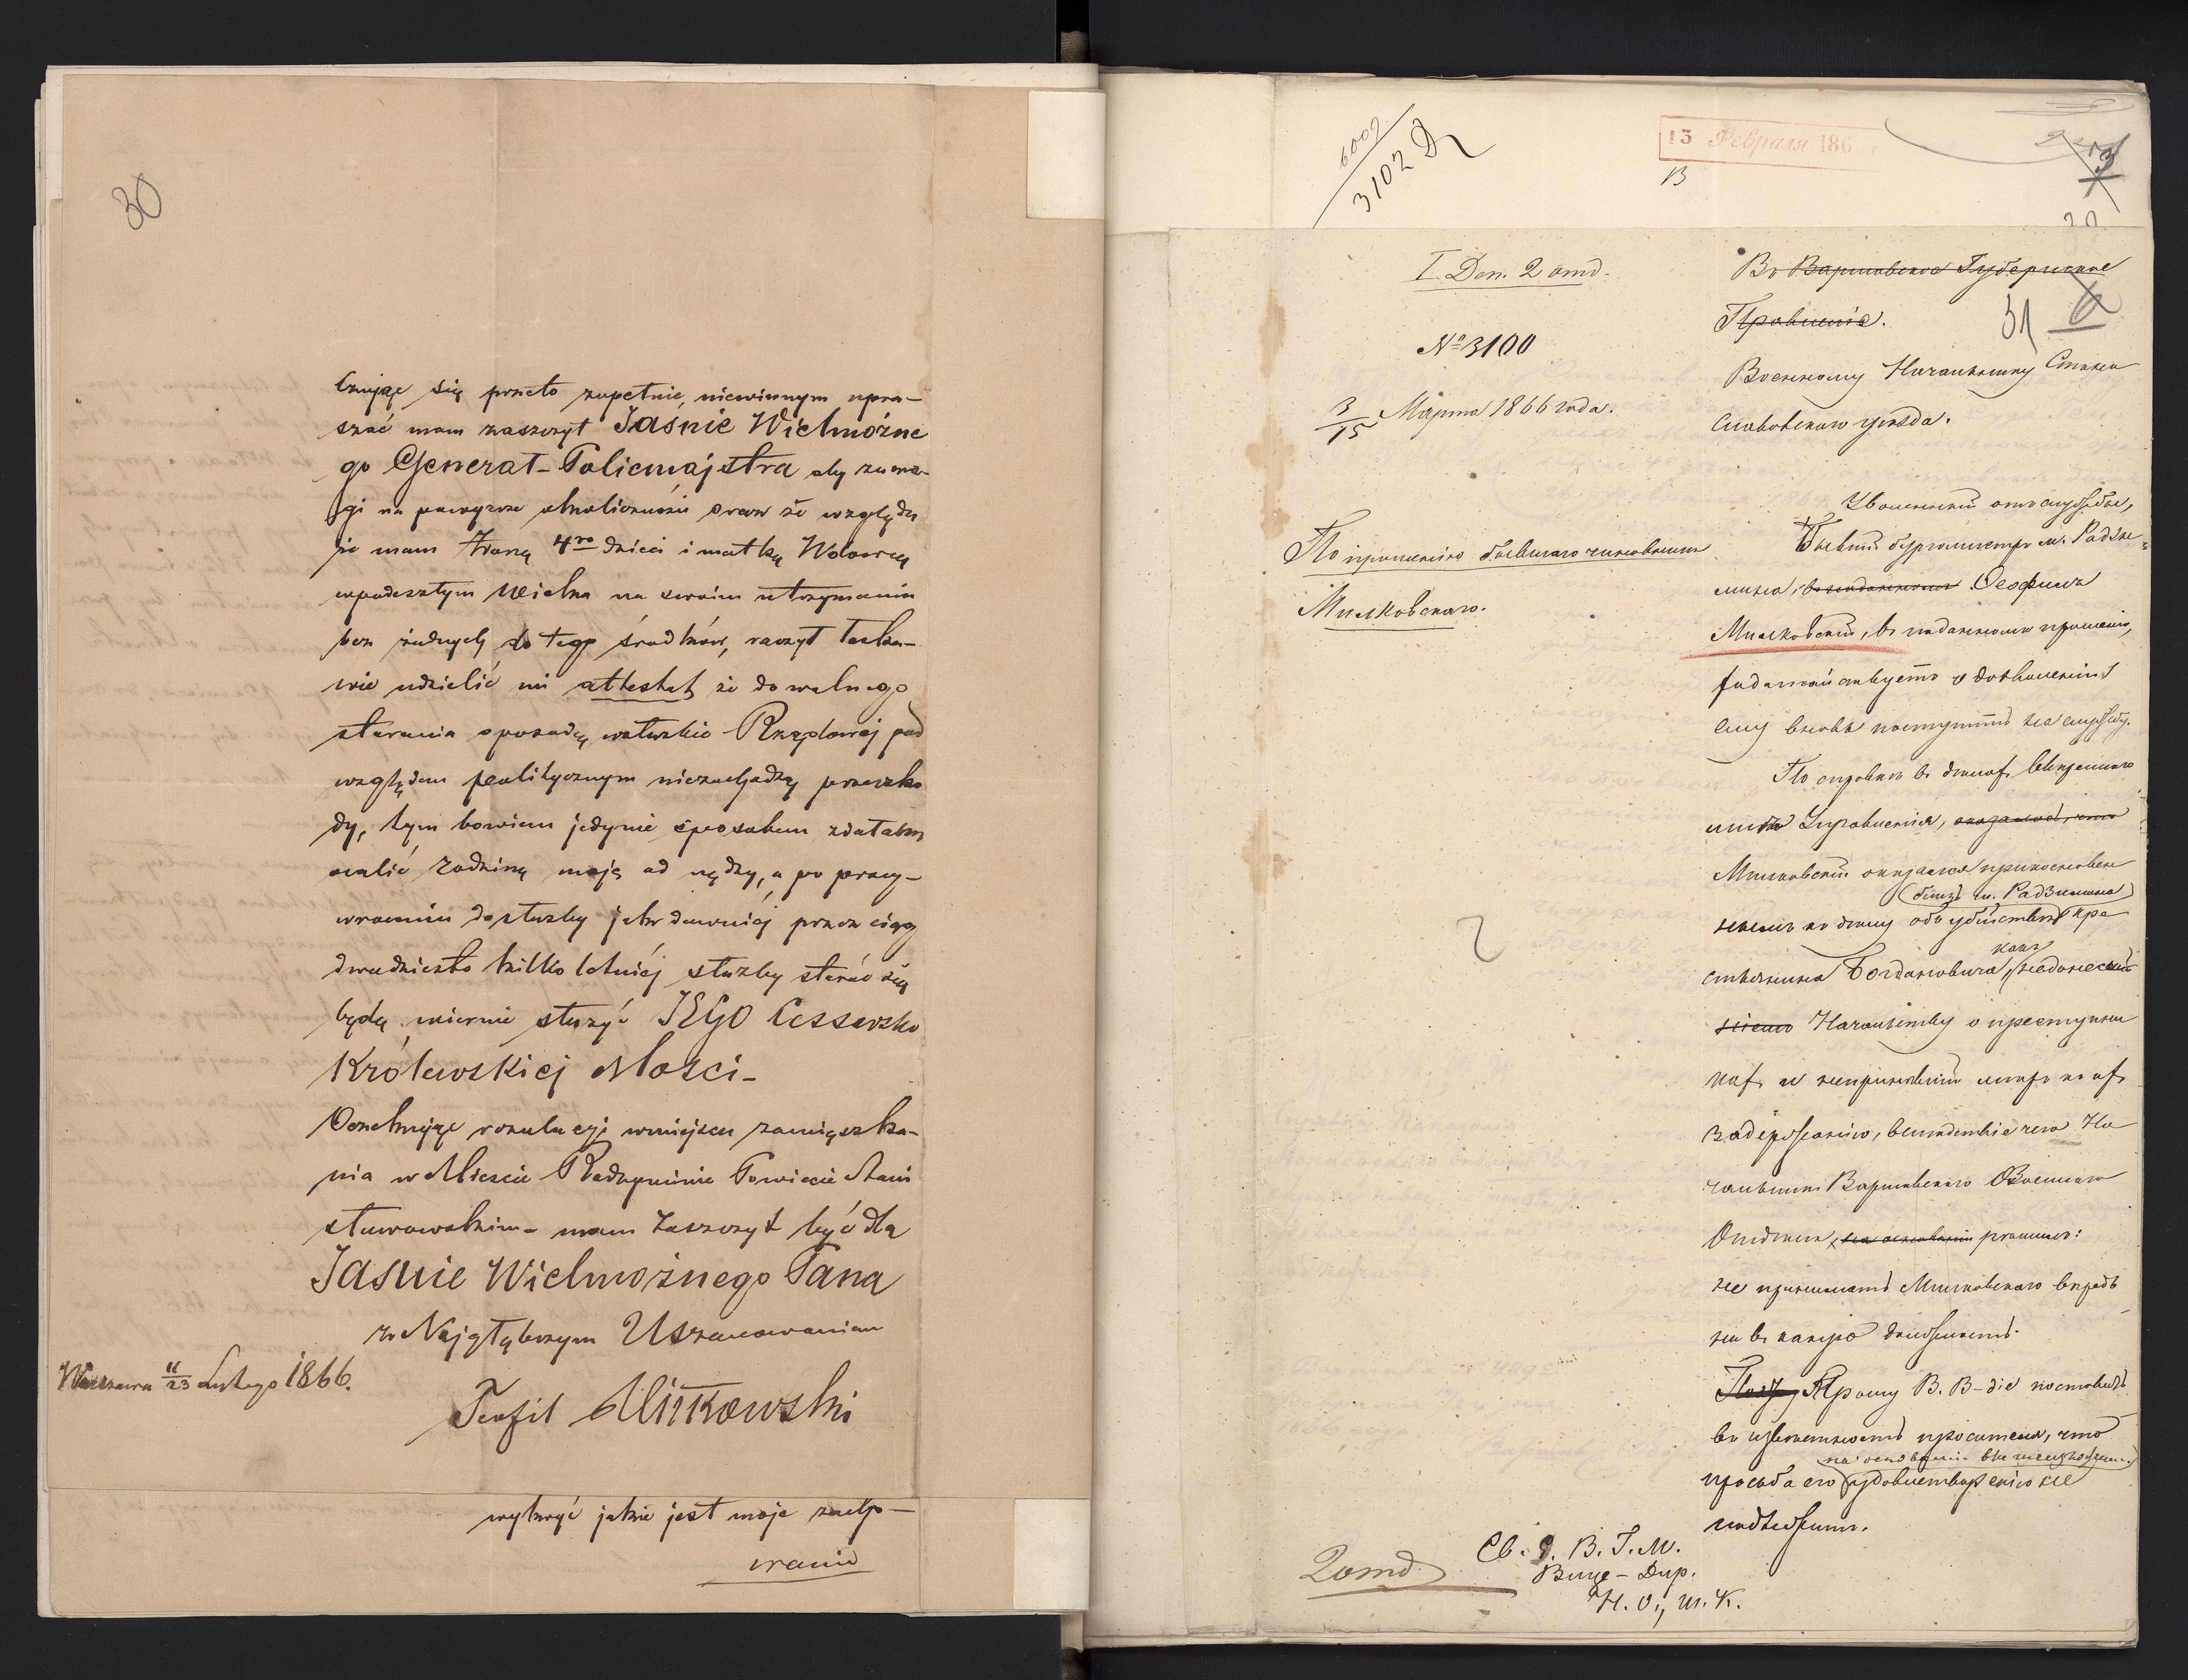 30
czując się przeto zupełnie, niewinnym upra-
szać mam zaszczyt Jaśnie Wielmożne
go Generał-Policmajstra aby zuwa-
gi na powyższe okoliczności oraz że względu
że mam żonę 4ro dzieci i matkę Wdowę
wpodeszłym Wieku na swoim utrzymaniu
bez żadnych do tego środków, raczył łaska-
wie udzielić mi attestat że do walnego
starania oposadę wsłużbie Rządowej pod
względem politycznym niezachodzą przeszko
dy, tym bowiem jedynie sposobem zdołałbym
ocalić rodzinę moję od nędzy, a po przy-
wróceniu dosłużby jak dawniéj przez ciąg
dwudziesto kilko letniéj służby starać się
będę wiernie służyć JEGO Cessarsko
Królewskiej Mości-
Oczekując rezolucyi wmiejscu zamięszka-
nia w Mieście Radzyminie Powiecie Stani
sławowskim - mam zaszczyt być dla
Jaśnie Wielmożnego Pana
z Najgłębszym Uszanowaniem
Warszawa 11/23 Lutego 1866.
Teofil Miłkowski
wykryć jakie jest moje zacho-
wanie
6002
3102 Д
13 Февраля 186
В
I Деп. 2 отд.
№ 3100
3/15 Марта 1866 года.
По прошенію бывшаго чиновника
Милковскаго.
Въ Варшавское Губернское
Правленіе.
31
Военному Начальнику Станис
лавовскаго уѣзда.
Уволенный отъ службы,
Бывшій бургомистръ м. Радзи-
мина, Ѳеофилъ
Милковскій, въ поданномъ прошеніи,
ходатайствуетъ о дозволеніи
ему вновь поступить на службу.
По справкѣ въ дѣлахъ ввѣреннаго
мнѣ Управленія, оказалось, что
Милковскій оказался прикосновен
(близъ м. Радзимина)
нымъ къ дѣлу объ убійствѣ кре
какъ
стьянина Богдановича, недонесшій
Начальству о преступни
кахъ и непринявшій мѣръ къ ихъ
задержанію, вслѣдствіе чего На
чальникъ Варшавскаго Военнаго
Отдѣла, на основаніи рѣшилъ:
не принимать Милковскаго впредь
ни въ какую должность.
Прошу В. В-діе поставить
въ извѣстность просителя, что
на основаніи вышеизложеннаго
просьба его удовлетворенію не
подлежитъ.
2 отд.
Св. Е. В. Г. М.
Вице-Дир.
Н. О., Ш. К.